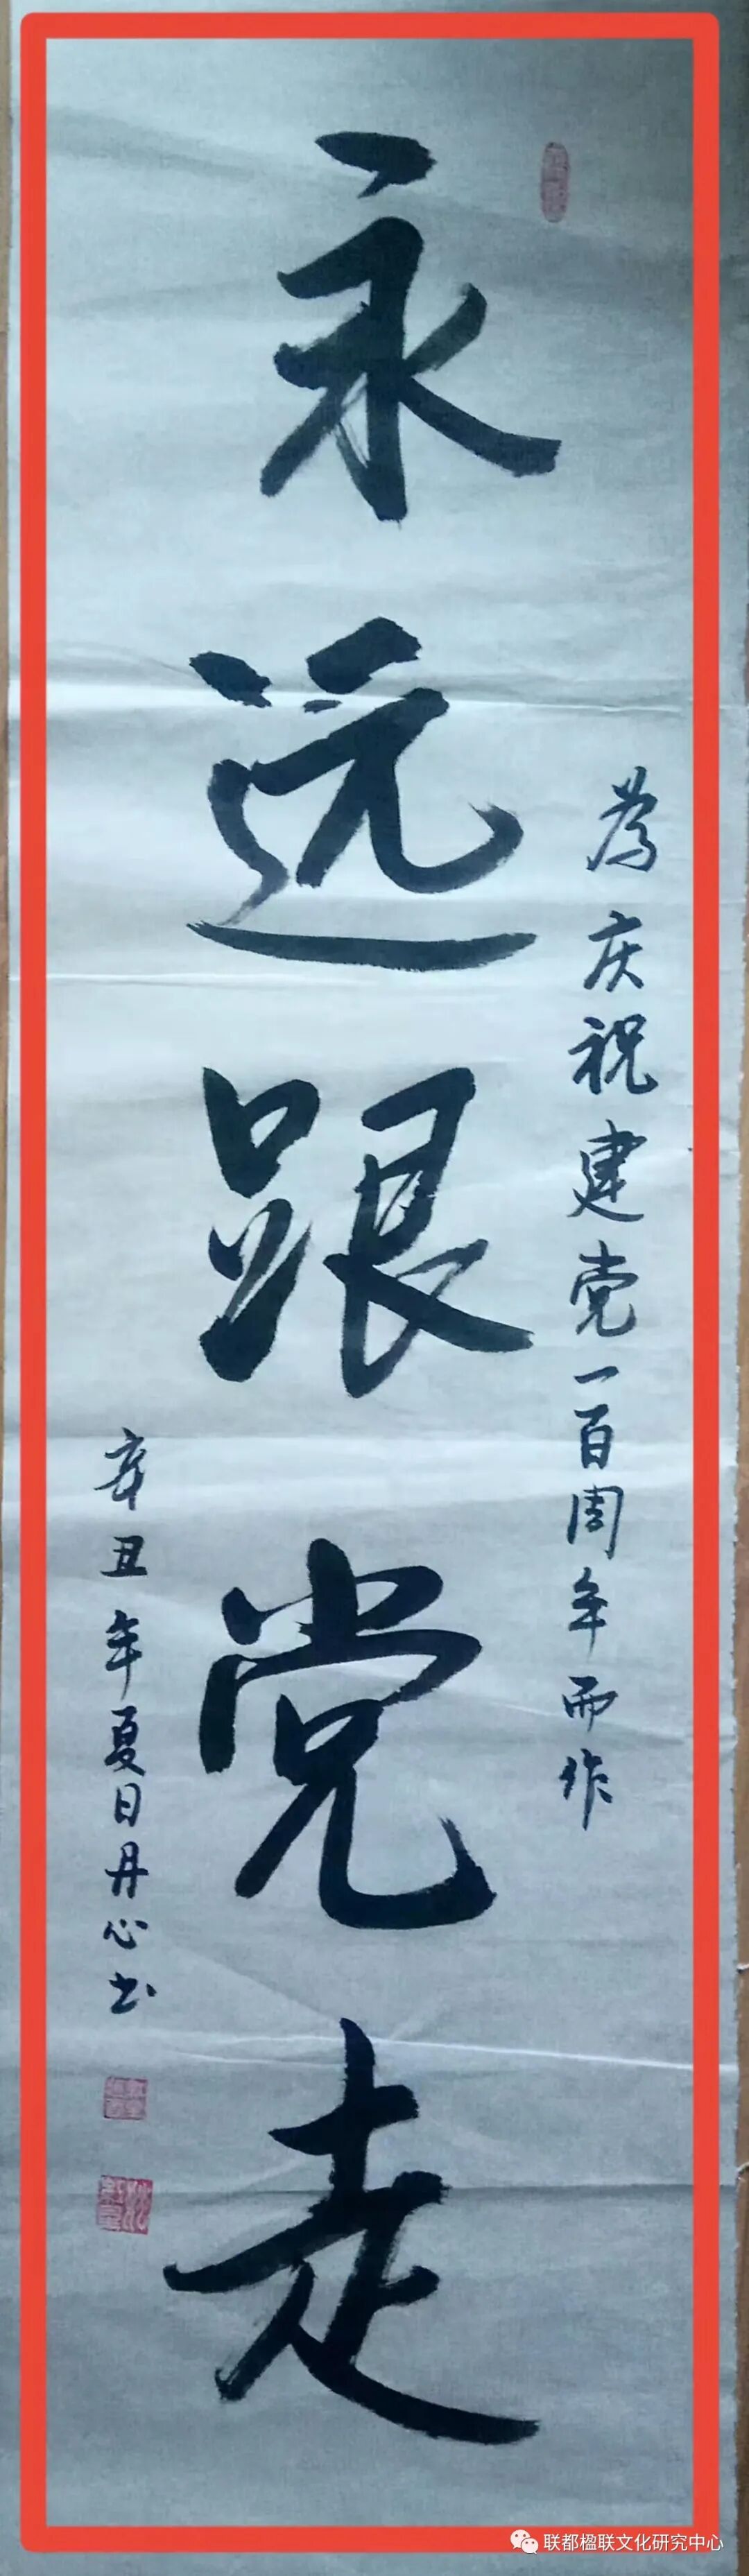 为庆祝建党一百周年而作
永远跟党走
辛丑年夏日丹心书
联都楹联文化研究中心